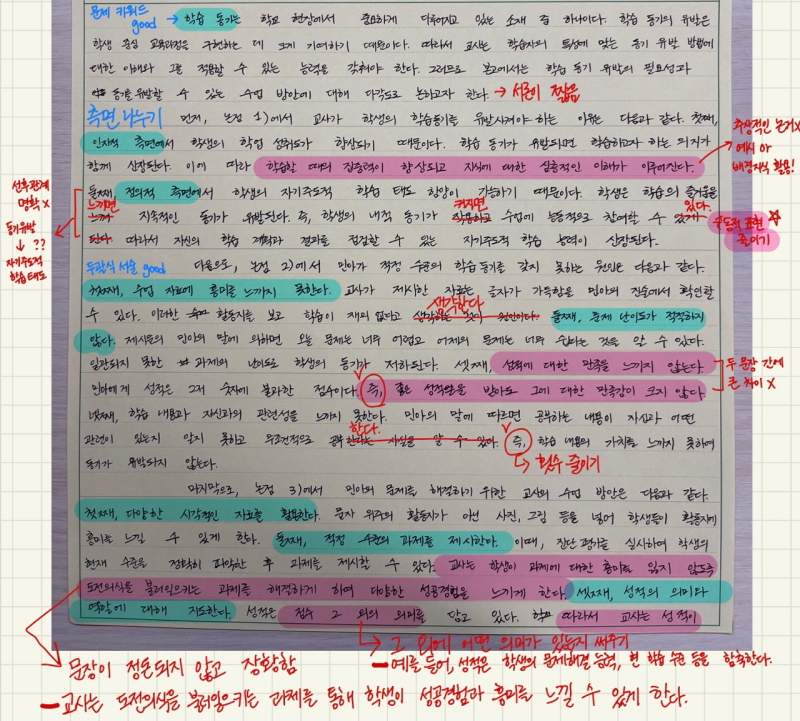 문제 키워드
good → 학습 동기는 학교 현장에서 중요하게 다루어지고 있는 소재 중 하나이다. 학습 동기의 유발은
학생 중심 교육과정을 구현하는 데 크게 기여하기 때문이다. 따라서 교사는 학습자의 특성에 맞는 동기 유발 방법에
대한 이해와 그를 적용할 수 있는 능력을 갖춰야 한다. 그러므로 본고에서는 학습 동기 유발의 필요성과
동기를 유발할 수 있는 수업 방안에 대해 다각도로 논하고자 한다. → 서론이 짧음
측면 나누기 먼저, 논점 1)에서 교사가 학생의 학습동기를 유발시켜야 하는 이유는 다음과 같다. 첫째,
인지적 측면에서 학생의 학업 성취도가 향상되기 때문이다. 학습 동기가 유발되면 학습하고자 하는 의지가
함께 신장된다. 이에 따라 학습할 때의 집중력이 향상되고 지식에 대한 실용적인 이해가 이루어진다.
추상적인 논거x
예시 or
배경지식 활용!
둘째, 정의적 측면에서 학생의 자기주도적 학습 태도 함양이 가능하기 때문이다. 학생은 학습의 즐거움을
선후관계
명확 X
동기유발
↓ ??
자기주도적
학습 태도
느끼면 커지면 있다.
느껴 지속적인 동기가 유발된다. 즉, 학생의 내적 동기가 작용하고 수업에 능동적으로 참여할 수 있게
된다. 따라서 자신의 학습 계획과 결과를 점검할 수 있는 자기주도적 학습 능력이 신장된다.
수동적 표현 ☆
줄이기
두괄식 서술 good 다음으로, 논점 2)에서 민아가 적정 수준의 학습동기를 갖지 못하는 원인은 다음과 같다.
첫째, 수업 자료에 흥미를 느끼지 못한다. 교사가 제시한 자료는 글자가 가득함을 민아의 진술에서 확인할
수 있다. 이러한 활동지를 보고 학습이 재미 없다고 생각하는 것이 원인이다. 둘째, 문제 난이도가 적절하지
생각한다.
않다. 제시문의 민아의 말에 의하면 오늘 문제는 너무 어렵고 어제의 문제는 너무 쉽다는 것을 알 수 있다.
일관되지 못한 과제의 난이도로 학생의 동기가 저하된다. 셋째, 성적에 대한 만족을 느끼지 않는다.
민아에게 성적은 그저 숫자에 불과한 점수이다. 즉, 좋은 성적을 받아도 그에 대한 만족감이 크지 않다.
두 문장 간에
큰 차이 X
넷째, 학습 내용과 자신과의 관련성을 느끼지 못한다. 민아의 말에 따르면 공부하는 내용이 자신과 어떤
한다.
관련이 있는지 알지 못하고 무조건적으로 공부한다는 사실을 알 수 있다. 즉, 학습 내용의 가치를 느끼지 못하여
동기가 유발되지 않는다. → 횟수 줄이기
마지막으로, 논점 3)에서 민아의 문제를 해결하기 위한 교사의 수업 방안은 다음과 같다.
첫째, 다양한 시각적인 자료를 활용한다. 문자 위주의 활동지가 아닌 사진, 그림 등을 넣어 학생들이 활동지에
흥미를 느낄 수 있게 한다. 둘째, 적정 수준의 과제를 제시한다. 이때, 진단 평가를 실시하여 학생의
현재 수준을 정확히 파악한 후 과제를 제시할 수 있다. 교사는 학생이 과제에 대한 흥미를 잃지 않도록
도전의식을 불러일으키는 과제를 해결하게 하여 다양한 성공경험을 느끼게 한다. 셋째, 성적의 의미와
역할에 대해 지도한다. 성적은 점수 그 외의 의미를 담고 있다. 따라서 교사는 성적이
→ 그 외에 어떤 의미가 있는지 써주기
→ 문장이 정돈되지 않고 장황함
– 예를 들어, 성적은 학생의 문제해결 능력, 현 학습 수준 등을 함축한다.
– 교사는 도전의식을 불러일으키는 과제를 통해 학생이 성공경험과 흥미를 느낄 수 있게 한다.